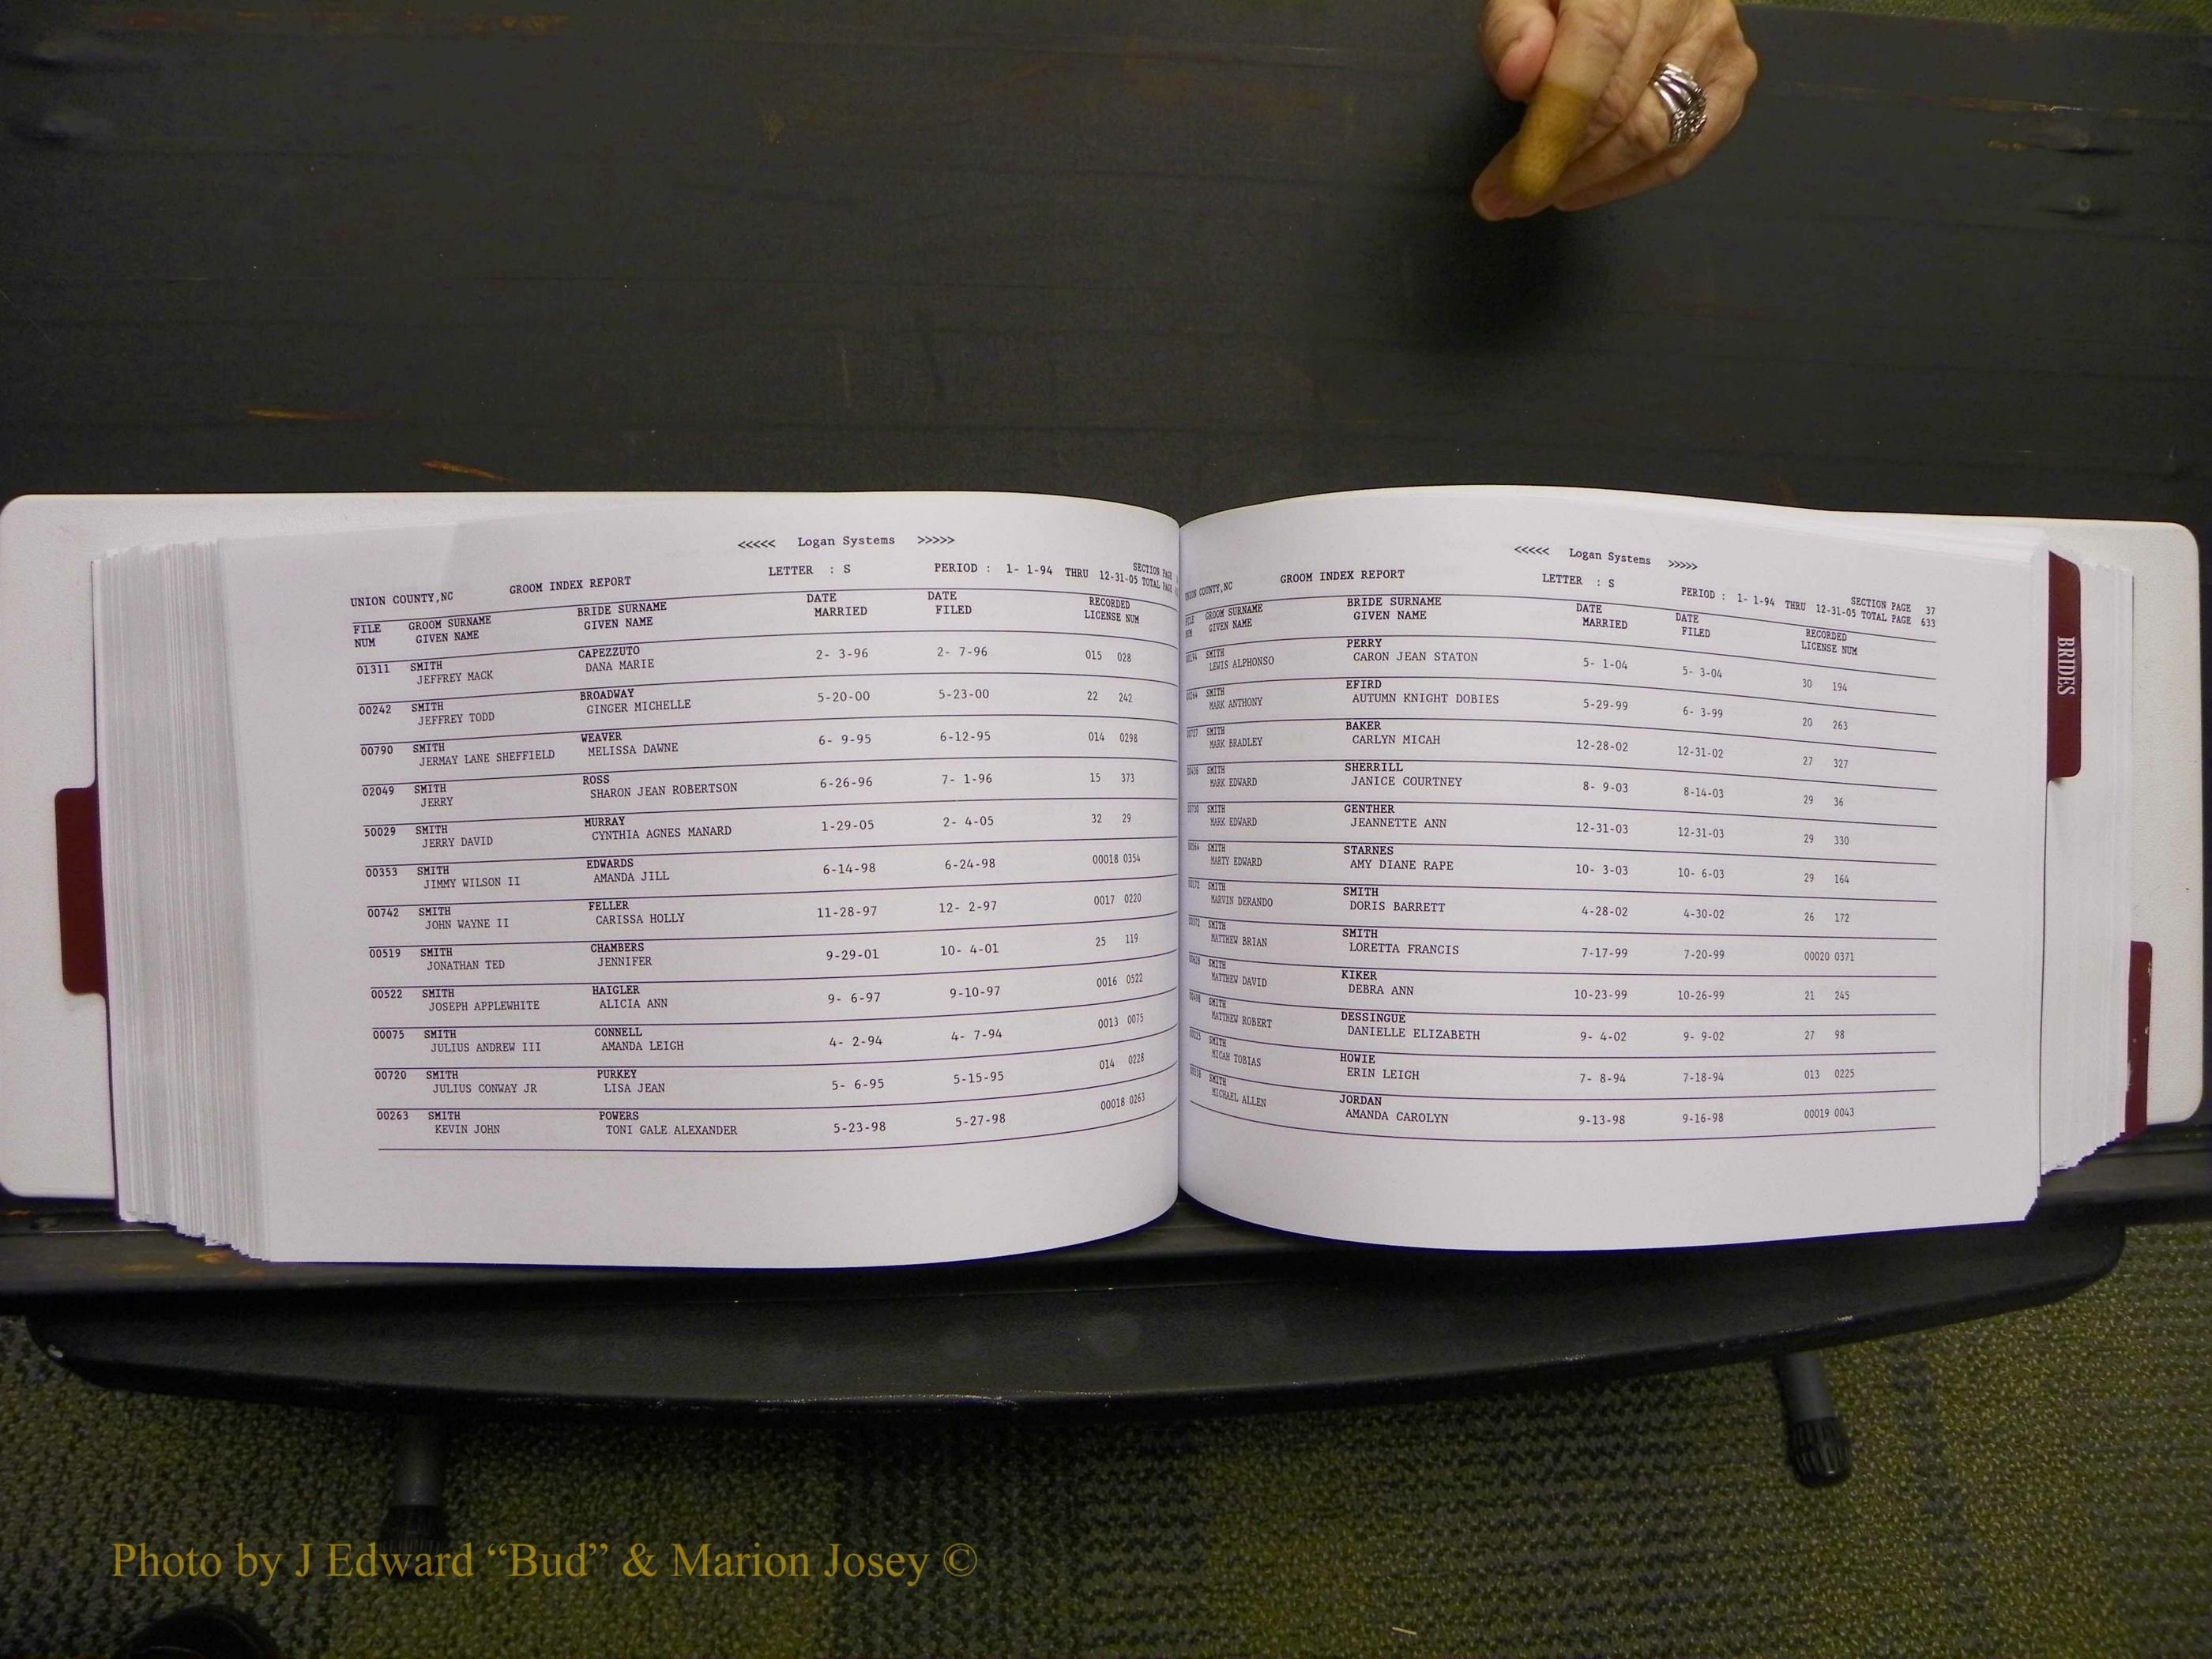 <<<<< Logan Systems >>>>>
UNION COUNTY,NC GROOM INDEX REPORT LETTER : S PERIOD : 1- 1-94 THRU 12-31-05 SECTION PAGE
TOTAL PAGE
FILE GROOM SURNAME BRIDE SURNAME DATE DATE RECORDED
NUM GIVEN NAME GIVEN NAME MARRIED FILED LICENSE NUM
01311 SMITH CAPEZZUTO 2- 3-96 2- 7-96 015 028
JEFFREY MACK DANA MARIE
00242 SMITH BROADWAY 5-20-00 5-23-00 22 242
JEFFREY TODD GINGER MICHELLE
00790 SMITH WEAVER 6- 9-95 6-12-95 014 0298
JERMAY LANE SHEFFIELD MELISSA DAWNE
02049 SMITH ROSS 6-26-96 7- 1-96 15 373
JERRY SHARON JEAN ROBERTSON
50029 SMITH MURRAY 1-29-05 2- 4-05 32 29
JERRY DAVID CYNTHIA AGNES MANARD
00353 SMITH EDWARDS 6-14-98 6-24-98 00018 0354
JIMMY WILSON II AMANDA JILL
00742 SMITH FELLER 11-28-97 12- 2-97 0017 0220
JOHN WAYNE II CARISSA HOLLY
00519 SMITH CHAMBERS 9-29-01 10- 4-01 25 119
JONATHAN TED JENNIFER
00522 SMITH HAIGLER 9- 6-97 9-10-97 0016 0522
JOSEPH APPLEWHITE ALICIA ANN
00075 SMITH CONNELL 4- 2-94 4- 7-94 0013 0075
JULIUS ANDREW III AMANDA LEIGH
00720 SMITH PURKEY 5- 6-95 5-15-95 014 0228
JULIUS CONWAY JR LISA JEAN
00263 SMITH POWERS 5-23-98 5-27-98 00018 0263
KEVIN JOHN TONI GALE ALEXANDER
<<<<< Logan Systems >>>>>
UNION COUNTY,NC GROOM INDEX REPORT LETTER : S PERIOD : 1- 1-94 THRU 12-31-05 SECTION PAGE 37
TOTAL PAGE 633
FILE GROOM SURNAME BRIDE SURNAME DATE DATE RECORDED
NUM GIVEN NAME GIVEN NAME MARRIED FILED LICENSE NUM
SMITH PERRY 5- 1-04 5- 3-04 30 194
LEWIS ALPHONSO CARON JEAN STATON
SMITH EFIRD 5-29-99 6- 3-99 20 263
MARK ANTHONY AUTUMN KNIGHT DOBIES
SMITH BAKER 12-28-02 12-31-02 27 327
MARK BRADLEY CARLYN MICAH
SMITH SHERRILL 8- 9-03 8-14-03 29 36
MARK EDWARD JANICE COURTNEY
SMITH GENTHER 12-31-03 12-31-03 29 330
MARK EDWARD JEANNETTE ANN
SMITH STARNES 10- 3-03 10- 6-03 29 164
MARTY EDWARD AMY DIANE RAPE
SMITH SMITH 4-28-02 4-30-02 26 172
MARVIN DERANDO DORIS BARRETT
SMITH SMITH 7-17-99 7-20-99 00020 0371
MATTHEW BRIAN LORETTA FRANCIS
SMITH KIKER 10-23-99 10-26-99 21 245
MATTHEW DAVID DEBRA ANN
SMITH DESSINGUE 9- 4-02 9- 9-02 27 98
MATTHEW ROBERT DANIELLE ELIZABETH
SMITH HOWIE 7- 8-94 7-18-94 013 0225
MICAH TOBIAS ERIN LEIGH
SMITH JORDAN 9-13-98 9-16-98 00019 0043
MICHAEL ALLEN AMANDA CAROLYN
BRIDES
Photo by J Edward “Bud” & Marion Josey ©